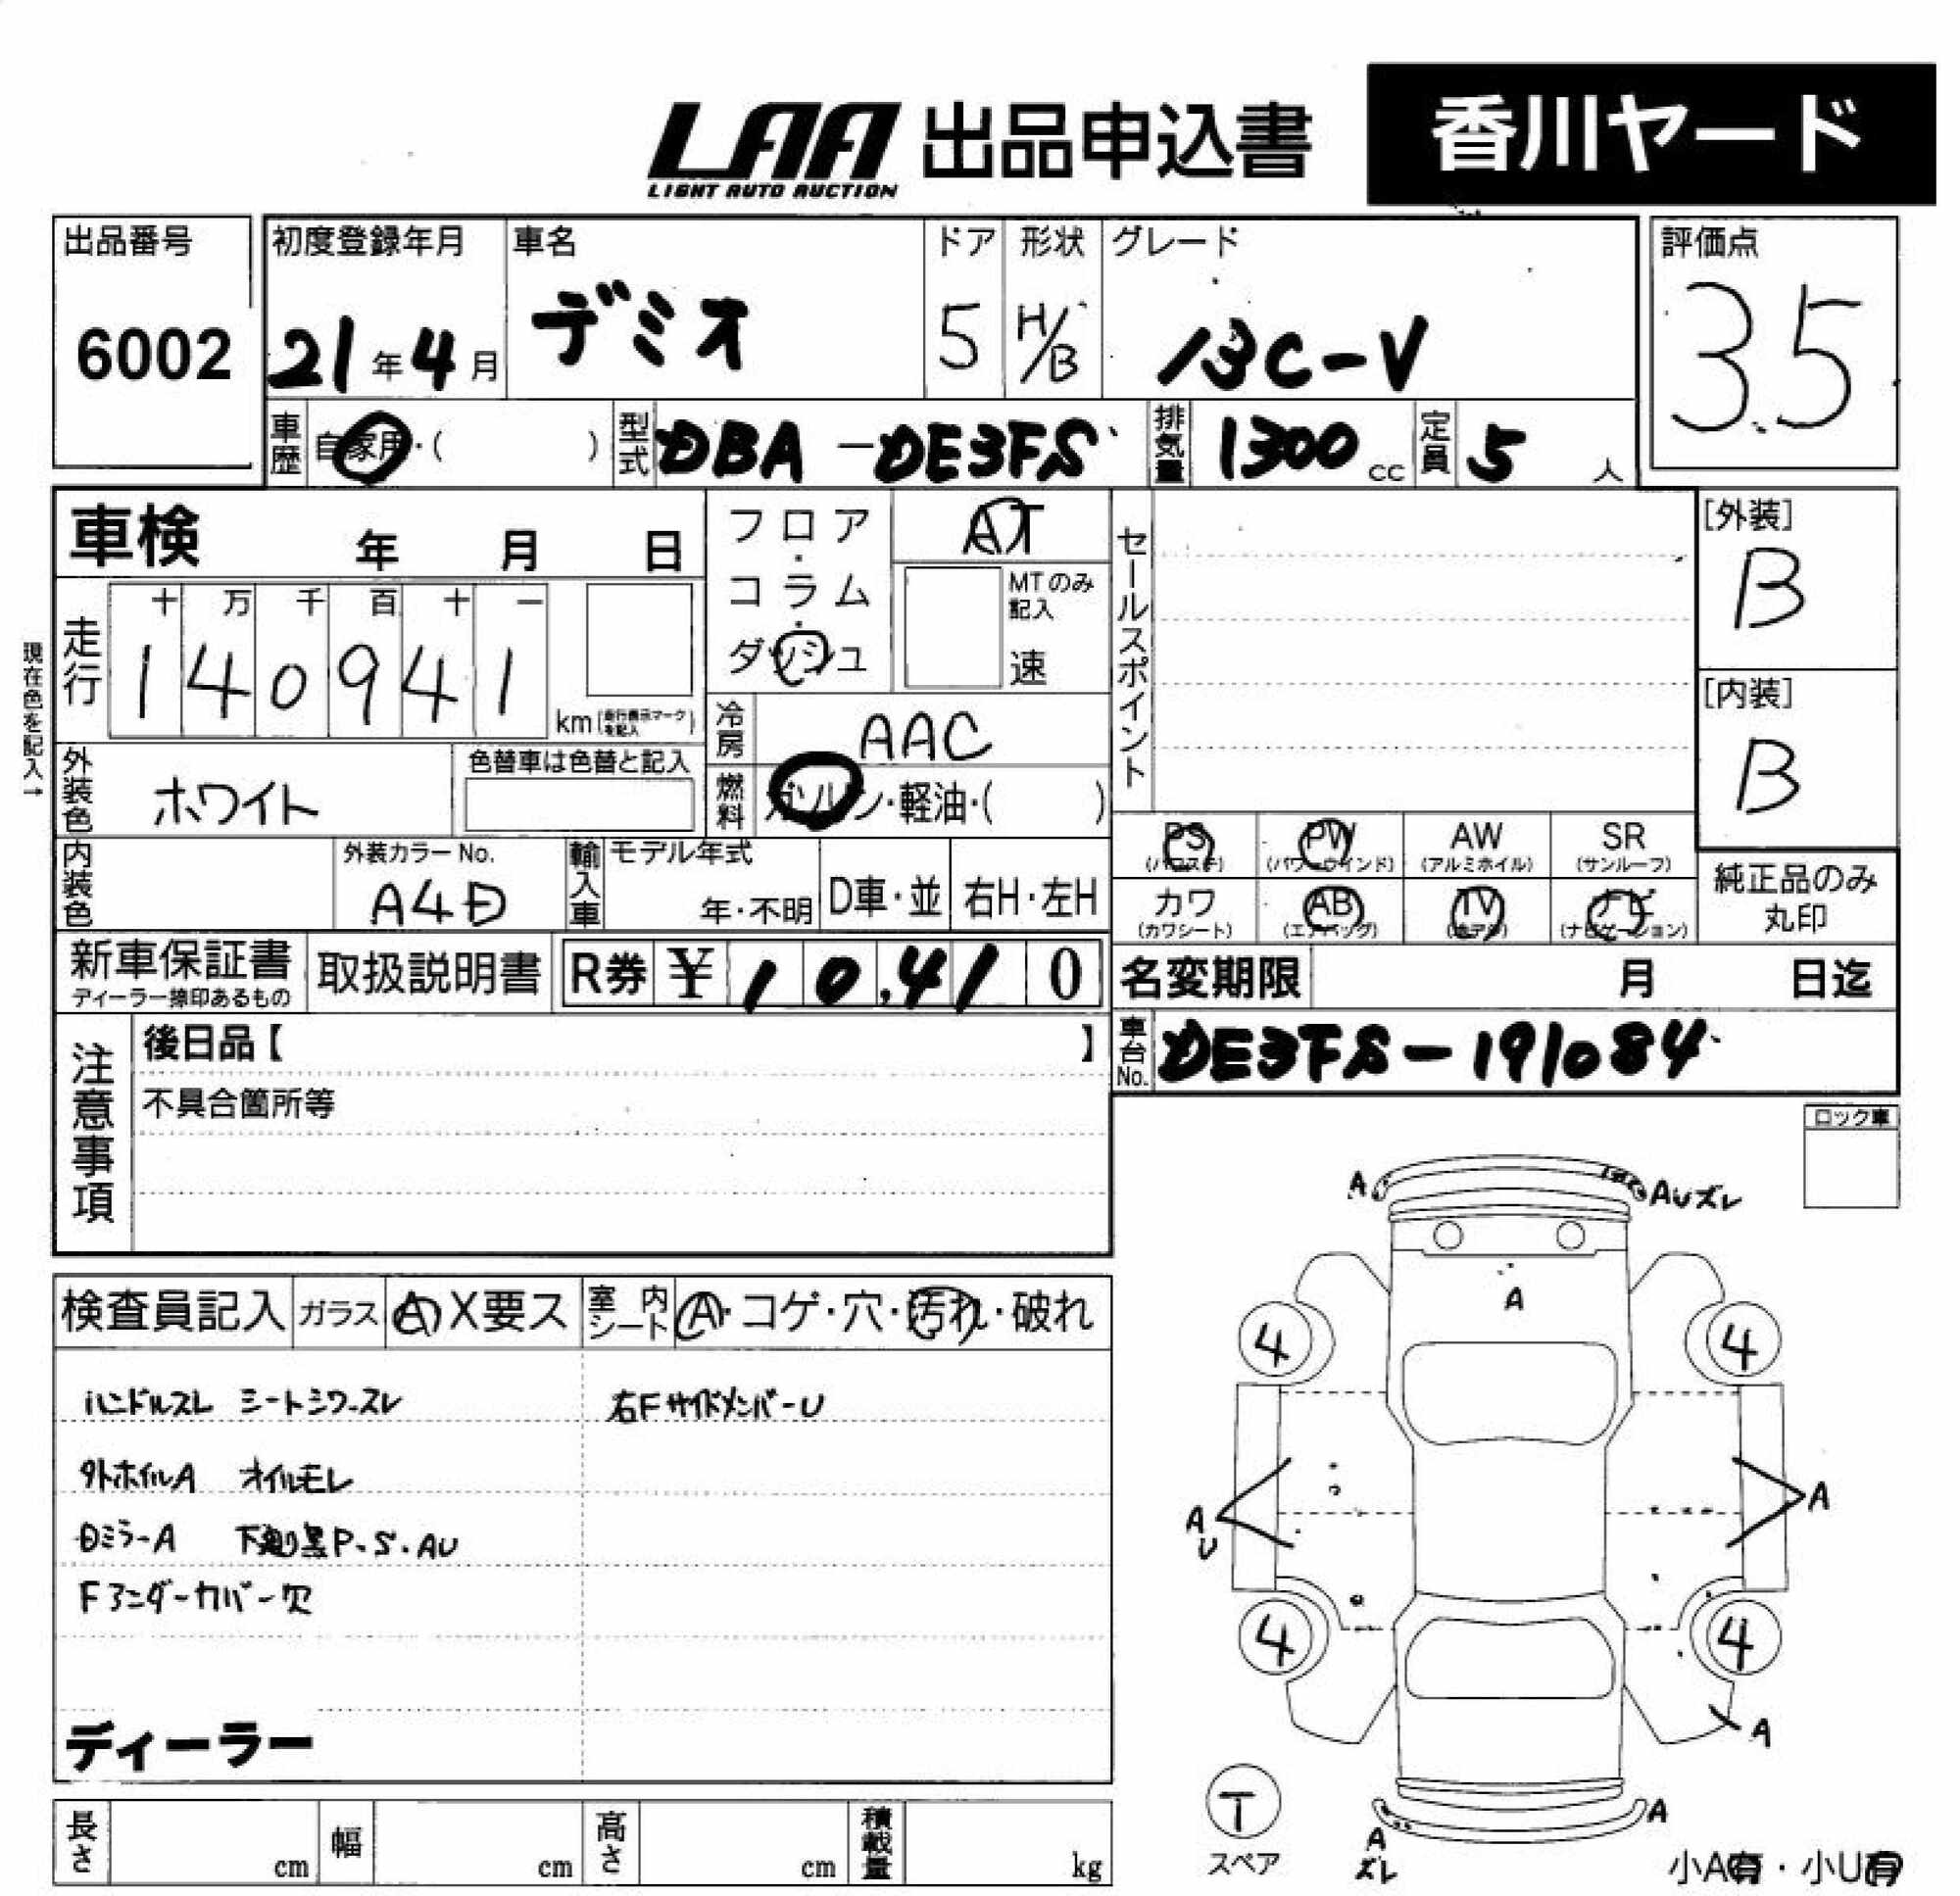 LAA 出品申込書 香川ヤード
LIGHT AUTO AUCTION
出品番号 初度登録年月 車名 ドア 形状 グレード 評価点
6002 21年4月 デミオ 5 H/B 13C-V 3.5
車歴 自家用・( ) 型式 DBA-DE3FS 排気量 1300cc 定員 5人
車検 年 月 日 フロア・コラム・ダッシュ AT セールスポイント [外装]
B
MTのみ記入
速
現在色を記入→
走行 十 万 千 百 十 一
1 4 0 9 4 1 km(走行表示マークを記入) [内装]
冷房 AAC B
外装色 ホワイト 色替車は色替と記入 燃料 ガソリン・軽油・( )
PS (パワステ) PW (パワーウインド) AW (アルミホイル) SR (サンルーフ)
内装色 外装カラーNo. A4D 輸入車 モデル年式 年・不明 D車・並 右H・左H
カワ (カワシート) AB (エアバッグ) TV (テレビ) ナビ (ナビゲーション) 純正品のみ丸印
新車保証書 取扱説明書 R券 ¥ 10,410 名変期限 月 日迄
ディーラー捺印あるもの
注意事項 後日品【 】 車台No. DE3FS-191084
不具合箇所等 ロック車
A AUズレ
検査員記入 ガラス A X要ス 室内シート A・コゲ・穴・汚れ・破れ
A
4 4
ハンドルスレ シートシワ-スレ 右FサイドメンバーU
外ホイルA オイルモレ
A A
U
Dミラ-A 下廻り黒P.S.AU
Fアンダーカバー欠
4 4
ディーラー A
T
スペア
A A
ズレ
長さ cm 幅 cm 高さ cm 積載量 kg 小A有・小U有